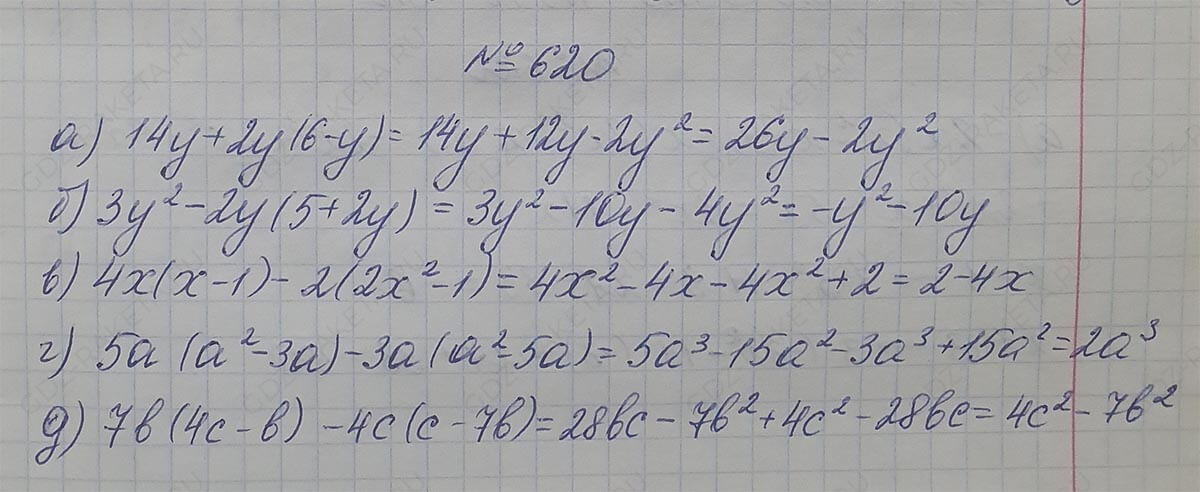 № 620
а) 14y + 2y(6-y) = 14y + 12y - 2y² = 26y - 2y²
б) 3y² - 2y(5 + 2y) = 3y² - 10y - 4y² = -y² - 10y
в) 4x(x-1) - 2(2x² - 1) = 4x² - 4x - 4x² + 2 = 2 - 4x
г) 5a (a² - 3a) - 3a (a² - 5a) = 5a³ - 15a² - 3a³ + 15a² = 2a³
д) 7b(4c - b) - 4c(c - 7b) = 28bc - 7b² + 4c² - 28bc = 4c² - 7b²